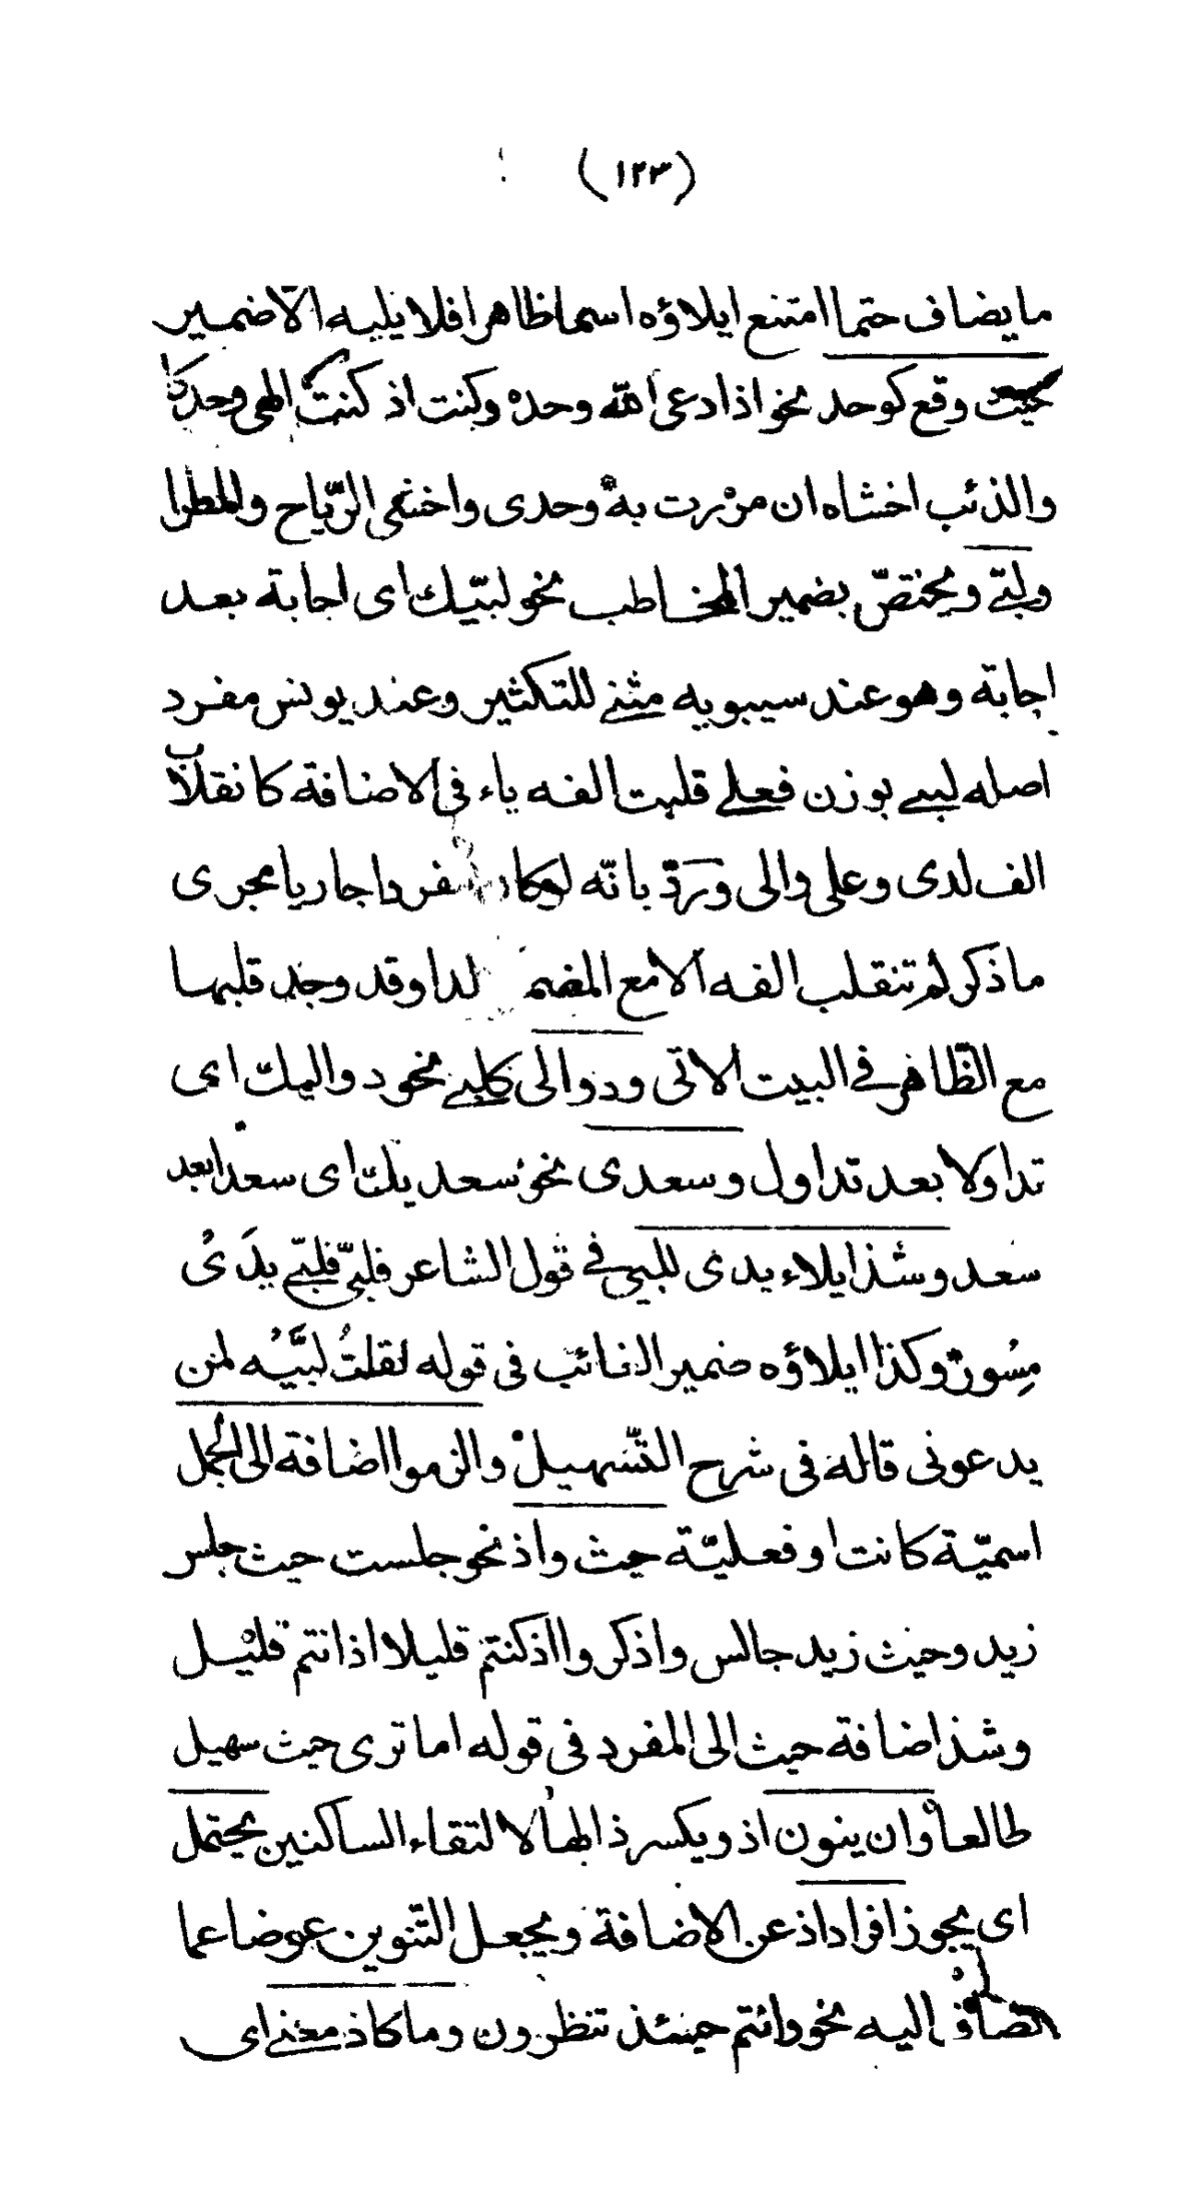 (١٢٣)
ما يضاف حتما امتنع ايلاؤه اسما ظاهرا فلا يليه الا ضمير
حيث وقع كوحد نحو اذا دعى الله وحده وكنت اذ كنت الهى وحدكا
والذئب اخشاه ان مررت به وحدى واخشى الرّياح والمطرا
ولبّى ويختصّ بضمير المخاطب نحو لبّيك اى اجابة بعد
اجابة وهو عند سيبويه مثنى للتكثير وعند يونس مفرد
اصله لبى بوزن فعلى قلبت الفه ياء فى الاضافة كانقلاب
الف لدى وعلى والى وردّ بانّه لو كان مفردا جاريا مجرى
ما ذكر لم تنقلب الفه الا مع المضمر لدا وقد وجد قلبها
مع الظّاهر فى البيت الاتى ودوالى كلبى نحو دواليك اى
تداولا بعد تداول وسعدى نحو سعديك اى سعدا بعد
سعد وشذ ايلاء يدى للبى فى قول الشاعر فلبّى فلبّى يدَى
مِسْور وكذا ايلاؤه ضمير الغائب فى قوله لقلتُ لبَّيْه لمن
يدعونى قاله فى شرح التّسهيل والزموا اضافة الى الجمل
اسميّة كانت او فعليّة حيث واذ نحو جلست حيث جلس
زيد وحيث زيد جالس واذكروا اذ كنتم قليلا اذ انتم قليل
وشذ اضافة حيث الى المفرد فى قوله اما ترى حيث سهيل
طالعا وان ينون اذ ويكسر ذالها لالتقاء الساكنين يحتمل
اى يجوز افراد اذ عن الاضافة ويجعل التّنوين عوضا عما
تضاف اليه نحو وانتم حينئذ تنظرون وما كاذ معنى اى